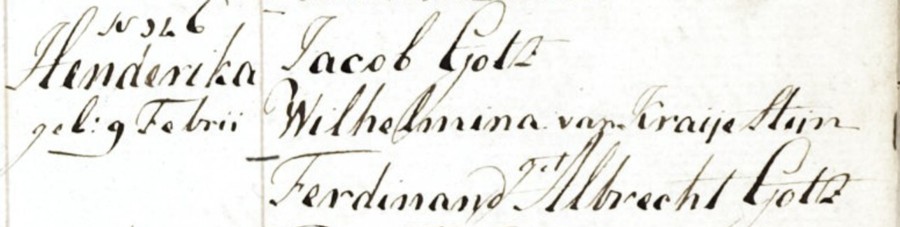 No 346
Henderika
geb: 9 Febrii
Jacob Gotz
Wilhelmina van Kraije Stijn
get
Ferdinand Albrecht Gotz